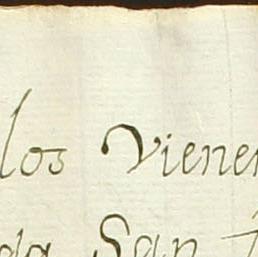 los Vienen
da San